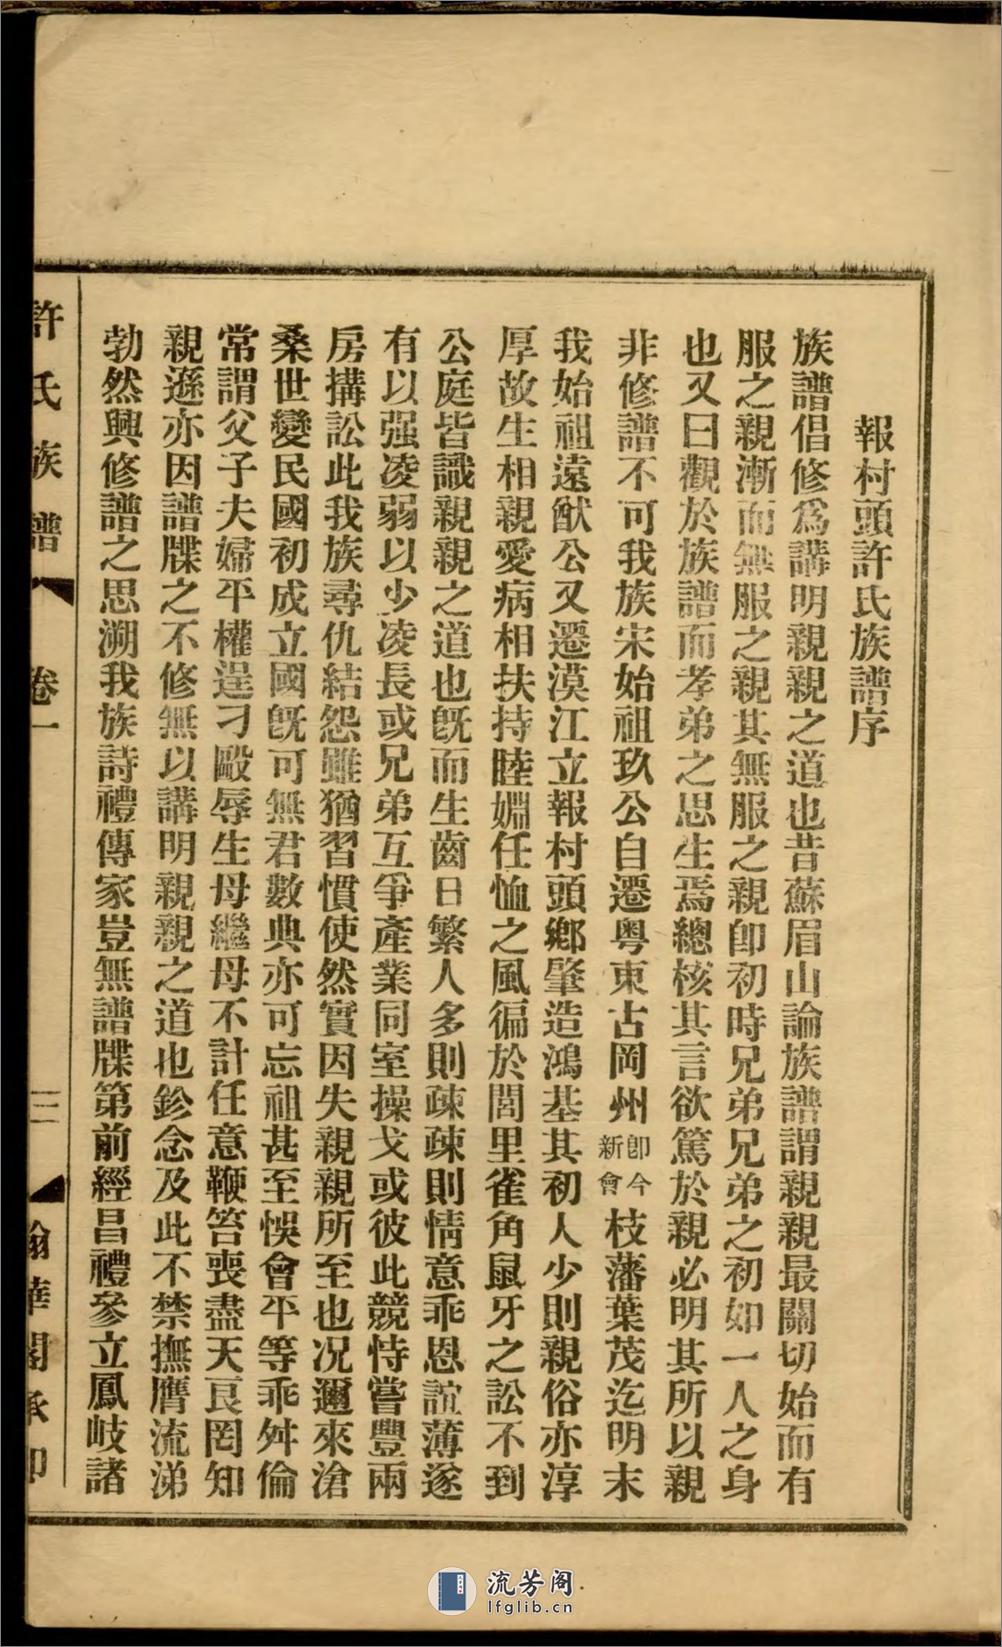 報村頭許氏族譜序
族譜倡修爲講明親親之道也昔蘇眉山論族譜謂親親最關切始而有
服之親漸而無服之親其無服之親卽初時兄弟兄弟之初如一人之身
也又曰觀於族譜而孝弟之思生焉總核其言欲篤於親必明其所以親
非修譜不可我族宋始祖玖公自遷粤東古岡州卽今新會枝藩葉茂迄明末
我始祖遠猷公又遷漠江立報村頭鄉肇造鴻基其初人少則親俗亦淳
厚故生相親愛病相扶持睦婣任恤之風徧於閭里雀角鼠牙之訟不到
公庭皆識親親之道也旣而生齒日繁人多則疎疎則情意乖恩誼薄遂
有以强凌弱以少凌長或兄弟互爭產業同室操戈或彼此競恃嘗豐兩
房搆訟此我族尋仇結怨雖猶習慣使然實因失親親所至也况邇來滄
桑世變民國初成立國旣可無君數典亦可忘祖甚至悞會平等乖舛倫
常謂父子夫婦平權逞刁毆辱生母繼母不計任意鞭笞喪盡天良罔知
親遜亦因譜牒之不修無以講明親親之道也鉁念及此不禁撫膺流涕
勃然興修譜之思溯我族詩禮傳家豈無譜牒第前經昌禮參立鳳岐諸
許氏族譜
卷一
三
翰華閣承印
流芳阁
lfglib.cn